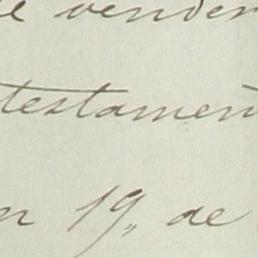 vender
testament
n 19, de